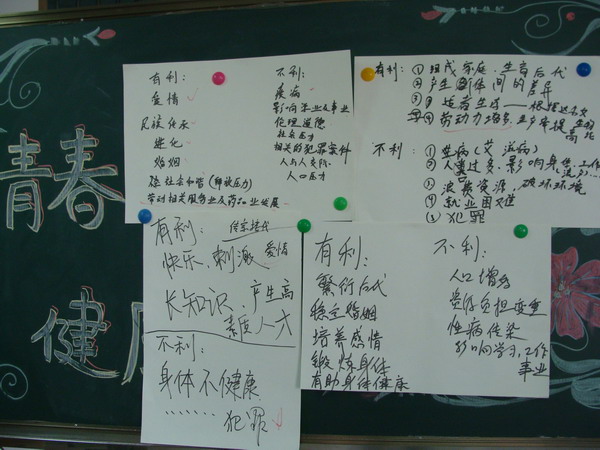 青春
健
有利：
爱情
民族传承
进化
婚姻
稳社会和谐（释放压力）
带动相关服务业及药品业发展
不利：
疾病
影响学业及事业
伦理道德
社会压力
相关的犯罪案件
人与人交际
人口压力
有利：① 组成家庭，生育后代
② 产生新体间的差异
③ 适者生存
④ 劳动力增多，生产率提高
不利：① 生病（艾滋病）
② 人数过多，影响身体、工作
③ 浪费资源，破坏环境
④ 就业困难
⑤ 犯罪
有利：
传宗接代
快乐、刺激 爱情
长知识、产生高
素质人才
不利：
身体不健康
……… 犯罪
有利：
繁衍后代
稳定婚姻
培养感情
锻炼身体
有助身体健康
不利：
人口增多
负担变重
性病传染
影响学习，工作
事业